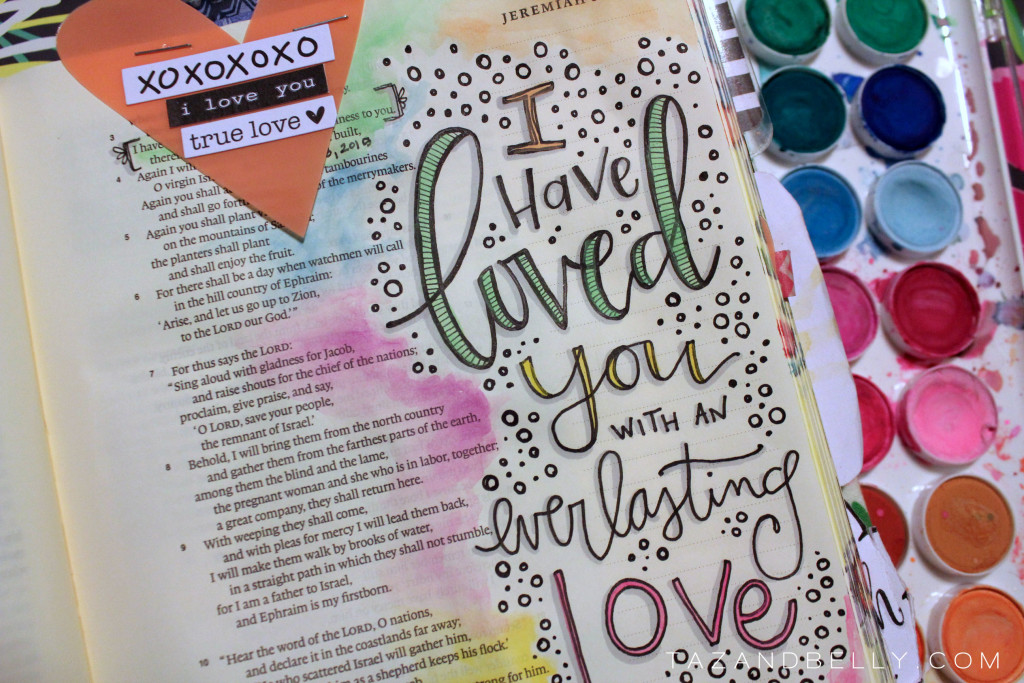 JEREMIAH
XOXOXOXO
i love you
true love
3
I have
ness to you.
built,
4 Again I wi
tambourines
O virgin Is
of the merrymakers.
Again you shall
and shall go for
5 Again you shall plant
on the mountains of Sa
the planters shall plant
and shall enjoy the fruit.
6 For there shall be a day when watchmen will call
in the hill country of Ephraim:
‘Arise, and let us go up to Zion,
to the LORD our God.’”
7 For thus says the LORD:
“Sing aloud with gladness for Jacob,
and raise shouts for the chief of the nations;
proclaim, give praise, and say,
‘O LORD, save your people,
the remnant of Israel.’
8 Behold, I will bring them from the north country
and gather them from the farthest parts of the earth,
among them the blind and the lame,
the pregnant woman and she who is in labor, together;
a great company, they shall return here.
9 With weeping they shall come,
and with pleas for mercy I will lead them back,
I will make them walk by brooks of water,
in a straight path in which they shall not stumble,
for I am a father to Israel,
and Ephraim is my firstborn.
10 “Hear the word of the LORD, O nations,
and declare it in the coastlands far away;
who scattered Israel will gather him,
him as a shepherd keeps his flock.’
strong for him.
I
Have
loved
you
WITH AN
everlasting
love
TAZANDBELLY.COM